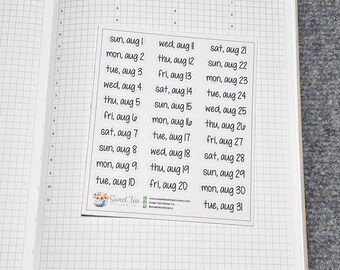 sun, aug 1
mon, aug 2
tue, aug 3
wed, aug 4
thu, aug 5
fri, aug 6
sat, aug 7
sun, aug 8
mon, aug 9
tue, aug 10
wed, aug 11
thu, aug 12
fri, aug 13
sat, aug 14
sun, aug 15
mon, aug 16
tue, aug 17
wed, aug 18
thu, aug 19
fri, aug 20
sat, aug 21
sun, aug 22
mon, aug 23
tue, aug 24
wed, aug 25
thu, aug 26
fri, aug 27
sat, aug 28
sun, aug 29
mon, aug 30
tue, aug 31
Sweet Tea